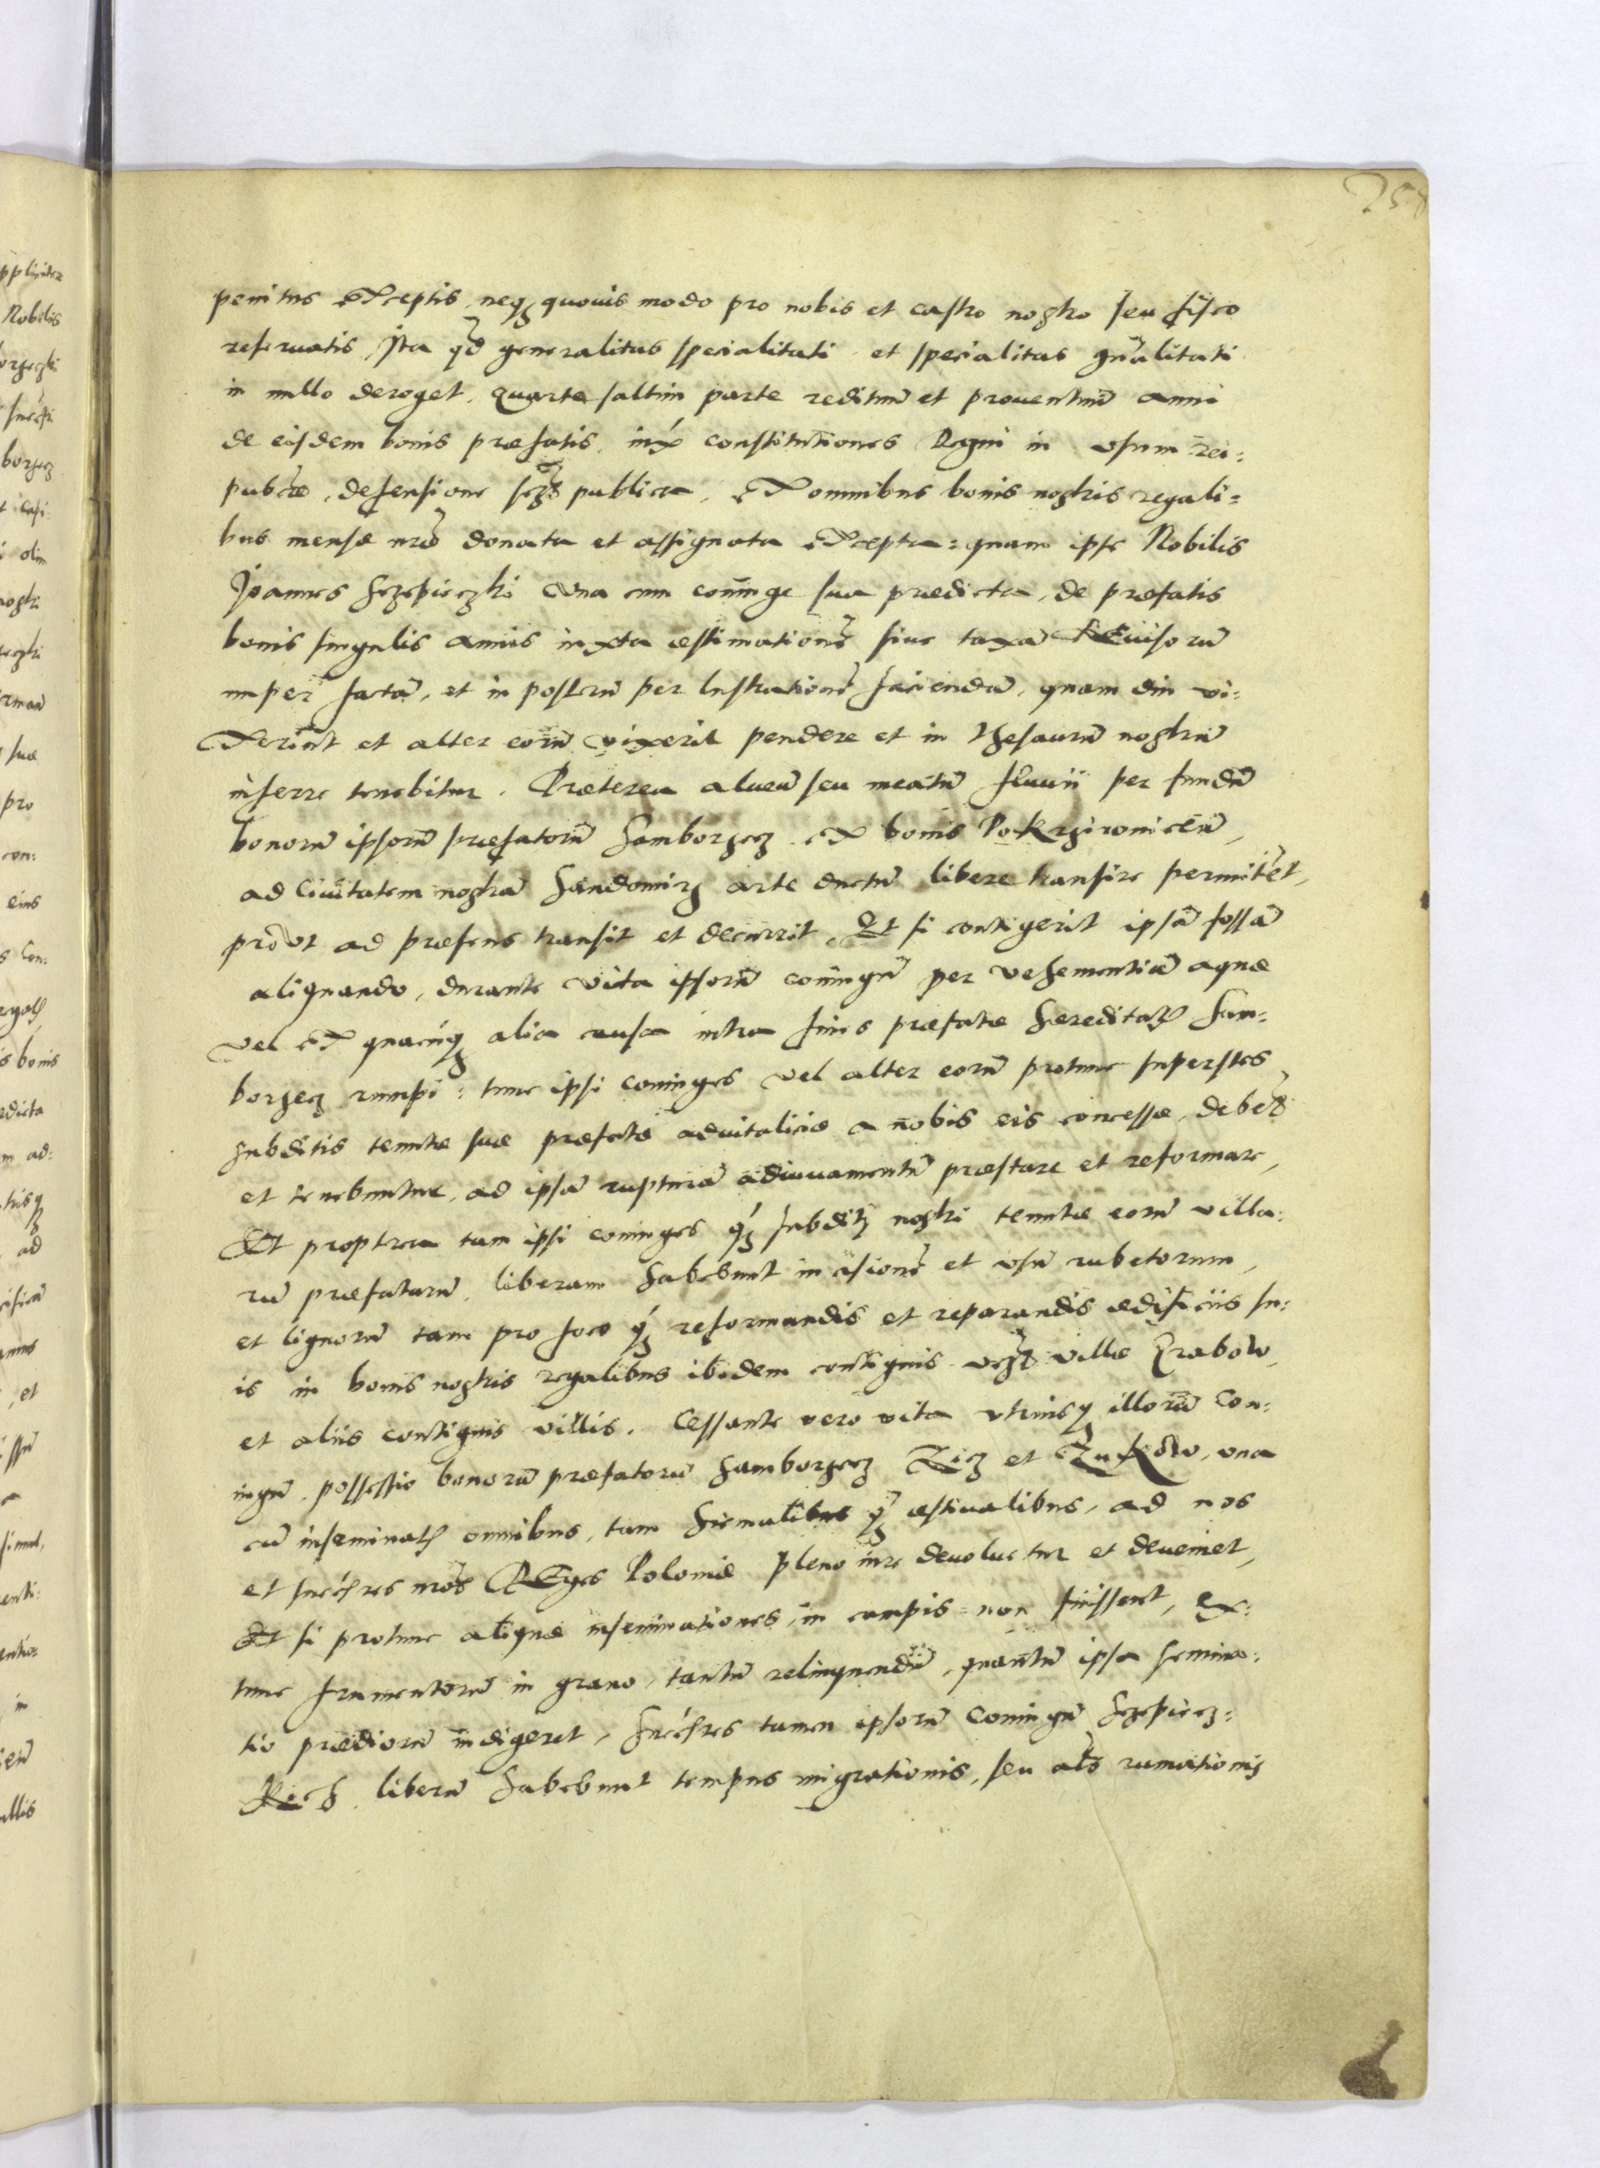 258
penitus exceptis, neq3 quouis modo pro nobis et castro nostro seu fisco
reseruatis, Ita qd generalitas specialitati et specialitas gnalitati
in nullo deroget. Quarta saltim parte redituū et prouentuū anni
de eisdem bonis præfatis, iux constitutiones Regni in vsum rei-
pubcæ, defensione scz publica, ex omnibus bonis nostris regali=
bus mensæ nræ donata et assignata excepta: quam ipse Nobilis
Joannes Sczepieczki vna cum coniuge sua prædicta, de præfatis
bonis singulis annis iuxta æstimationē siue taxā Reuisorū
nuper factā, et in posterū per lustrationē faciendā, quam diu vi-
xerint et alter eorū vixerit pendere et in thesaurū nostrū
inferre tenebitur. Præterea alueū seu meatū fluuii per fundū
bonorū ipsorū præfatorū Samborzecz ex bonis Pokrziwniczā,
ad Ciuitatem nostrā Sandomirz arte ductū libere transire permittēt,
prout ad præsens transit et decurrit. Et si contigerit ipsā fossā
aliquando, durante vita ipsorū coniugū per vehementiā aquæ
vel ex quacūq3 alia causa intra fines præfatæ hæreditatis Sam-
borzecz rumpi: tunc ipsi coniuges vel alter eorū protunc superstes
subditis tenutæ suæ præfatæ aduitaliciæ a nobis eis concessæ, debet
et tenebuntur, ad ipsā rupturā adiuuamentū præstare et reformare,
Et propterea tam ipsi coniuges q3 subditi nostri tenutæ eorū villa-
rū præfatarū, liberam habebunt incisionē et vsū rubetorum,
et lignorū tam pro foco q3 reformandis et reparandis ædificiis su-
is in bonis nostris regalibus ibidem contiguis vcz villæ Grabow,
et aliis contiguis villis. Cessante vero vita vtriusq3 illorū con-
iugū, possessio bonorū præfatorū Samborzecz Zicz et Zukow, vna
cū inseminatis omnibus, tam hiemalibus q3 æstiualibus, ad nos
et succres nros Reges Poloniæ pleno iure deuoluetur et deueniet,
Et si protunc aliquæ inseminationes in campis non fuissent, ex-
tunc frumentorū in grano, tantū relinquendū, quantū ipsa semina-
tio prædiorū indigeret, succres tamen ipsorū Coniugū Sczepiecz-
kich liberū habebunt tempus migrationis, seu als rumationis